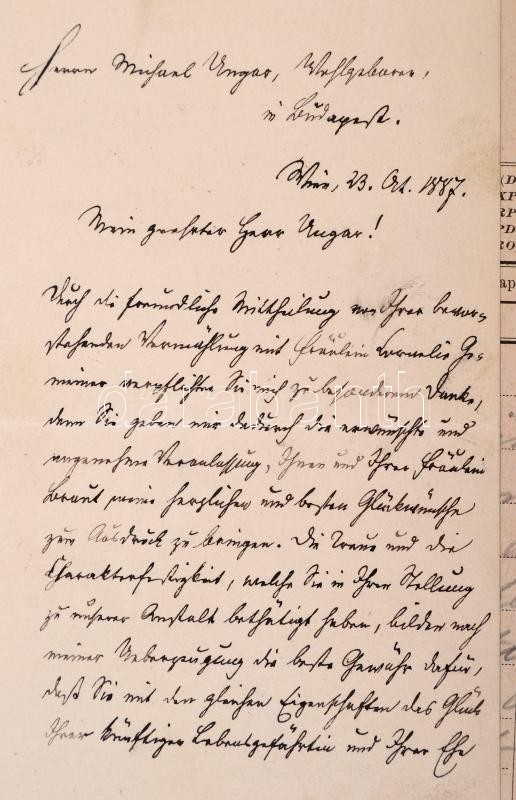 Herrn Michael Ungar, Wohlgeboren,
in Budapest.
Wien, 23. Okt. 1887.
Mein geehrter Herr Ungar!
Durch die freundliche Mittheilung von Ihrer bevor-
stehenden Vermählung mit Fräulein Cornelie Ge-
meiner verpflichten Sie mich zu besonderem Danke,
denn Sie geben mir dadurch die erwünschte und
angenehme Veranlassung, Ihnen und Ihrer Fräulein
Braut meine herzlichen und besten Glückwünsche
zum Ausdruck zu bringen. Die Treue und die
Charakterfestigkeit, welche Sie in Ihrer Stellung
zu unserer Anstalt bethätigt haben, bilden nach
meiner Ueberzeugung die beste Gewähr dafür,
daß Sie mit den gleichen Eigenschaften das Glück
Ihrer künftigen Lebensgefährtin und Ihrer Ehe
darabanth